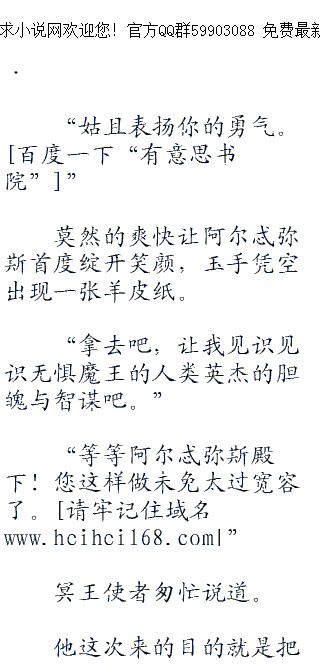 求小说网欢迎您！官方QQ群59903088 免费最新
.
“姑且表扬你的勇气。
[百度一下“有意思书
院”]”
莫然的爽快让阿尔忒弥
斯首度绽开笑颜，玉手凭空
出现一张羊皮纸。
“拿去吧，让我见识见
识无惧魔王的人类英杰的胆
魄与智谋吧。”
“等等阿尔忒弥斯殿
下！您这样做未免太过宽容
了。[请牢记住域名
www.hcihci168.com|”
冥王使者匆忙说道。
他这次来的目的就是把